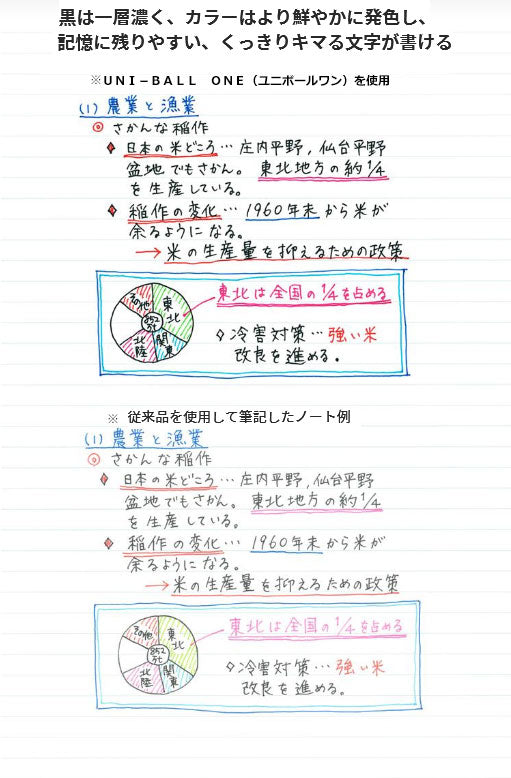 黒は一層濃く、カラーはより鮮やかに発色し、
記憶に残りやすい、くっきりキマる文字が書ける
※UNI-BALL ONE（ユニボールワン）を使用
(1) 農業と漁業
◎ さかんな稲作
◆ 日本の米どころ… 庄内平野, 仙台平野
盆地でもさかん。 東北地方の約1/4
を生産している。
◆ 稲作の変化… 1960年末から米が
余るようになる。
→ 米の生産量を抑えるための政策
その他
東北
852万t
北陸
関東
東北は全国の1/4を占める
◇冷害対策…強い米
改良を進める。
※ 従来品を使用して筆記したノート例
(1) 農業と漁業
◎ さかんな稲作
◆ 日本の米どころ… 庄内平野, 仙台平野
盆地でもさかん。 東北地方の約1/4
を生産している。
◆ 稲作の変化… 1960年末から米が
余るようになる。
→ 米の生産量を抑えるための政策
その他
東北
852万t
北陸
関東
東北は全国の1/4を占める
◇冷害対策…強い米
改良を進める。